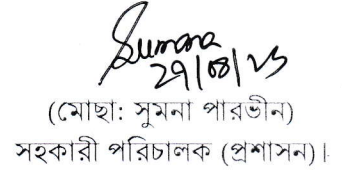 Sumana
29/08/23
(মোছা: সুমনা পারভীন)
সহকারী পরিচালক (প্রশাসন)।